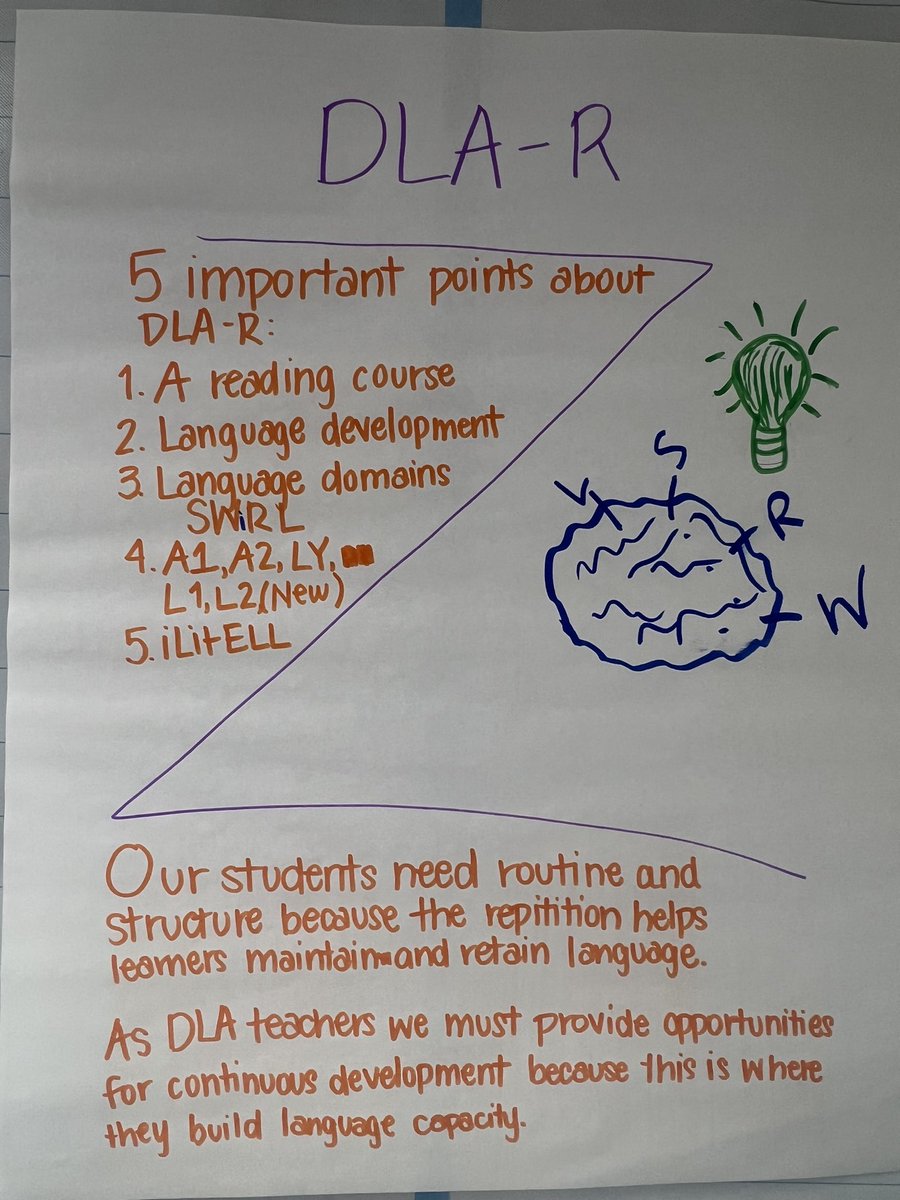 DLA-R
5 important points about
DLA-R:
1. A reading course
2. Language development
3. Language domains
SWiRL
4. A1, A2, LY,
L1, L2 (New)
5. iLitELL
S
V
R
W
Our students need routine and
structure because the repitition helps
learners maintain and retain language.
As DLA teachers we must provide opportunities
for continuous development because this is where
they build language capacity.